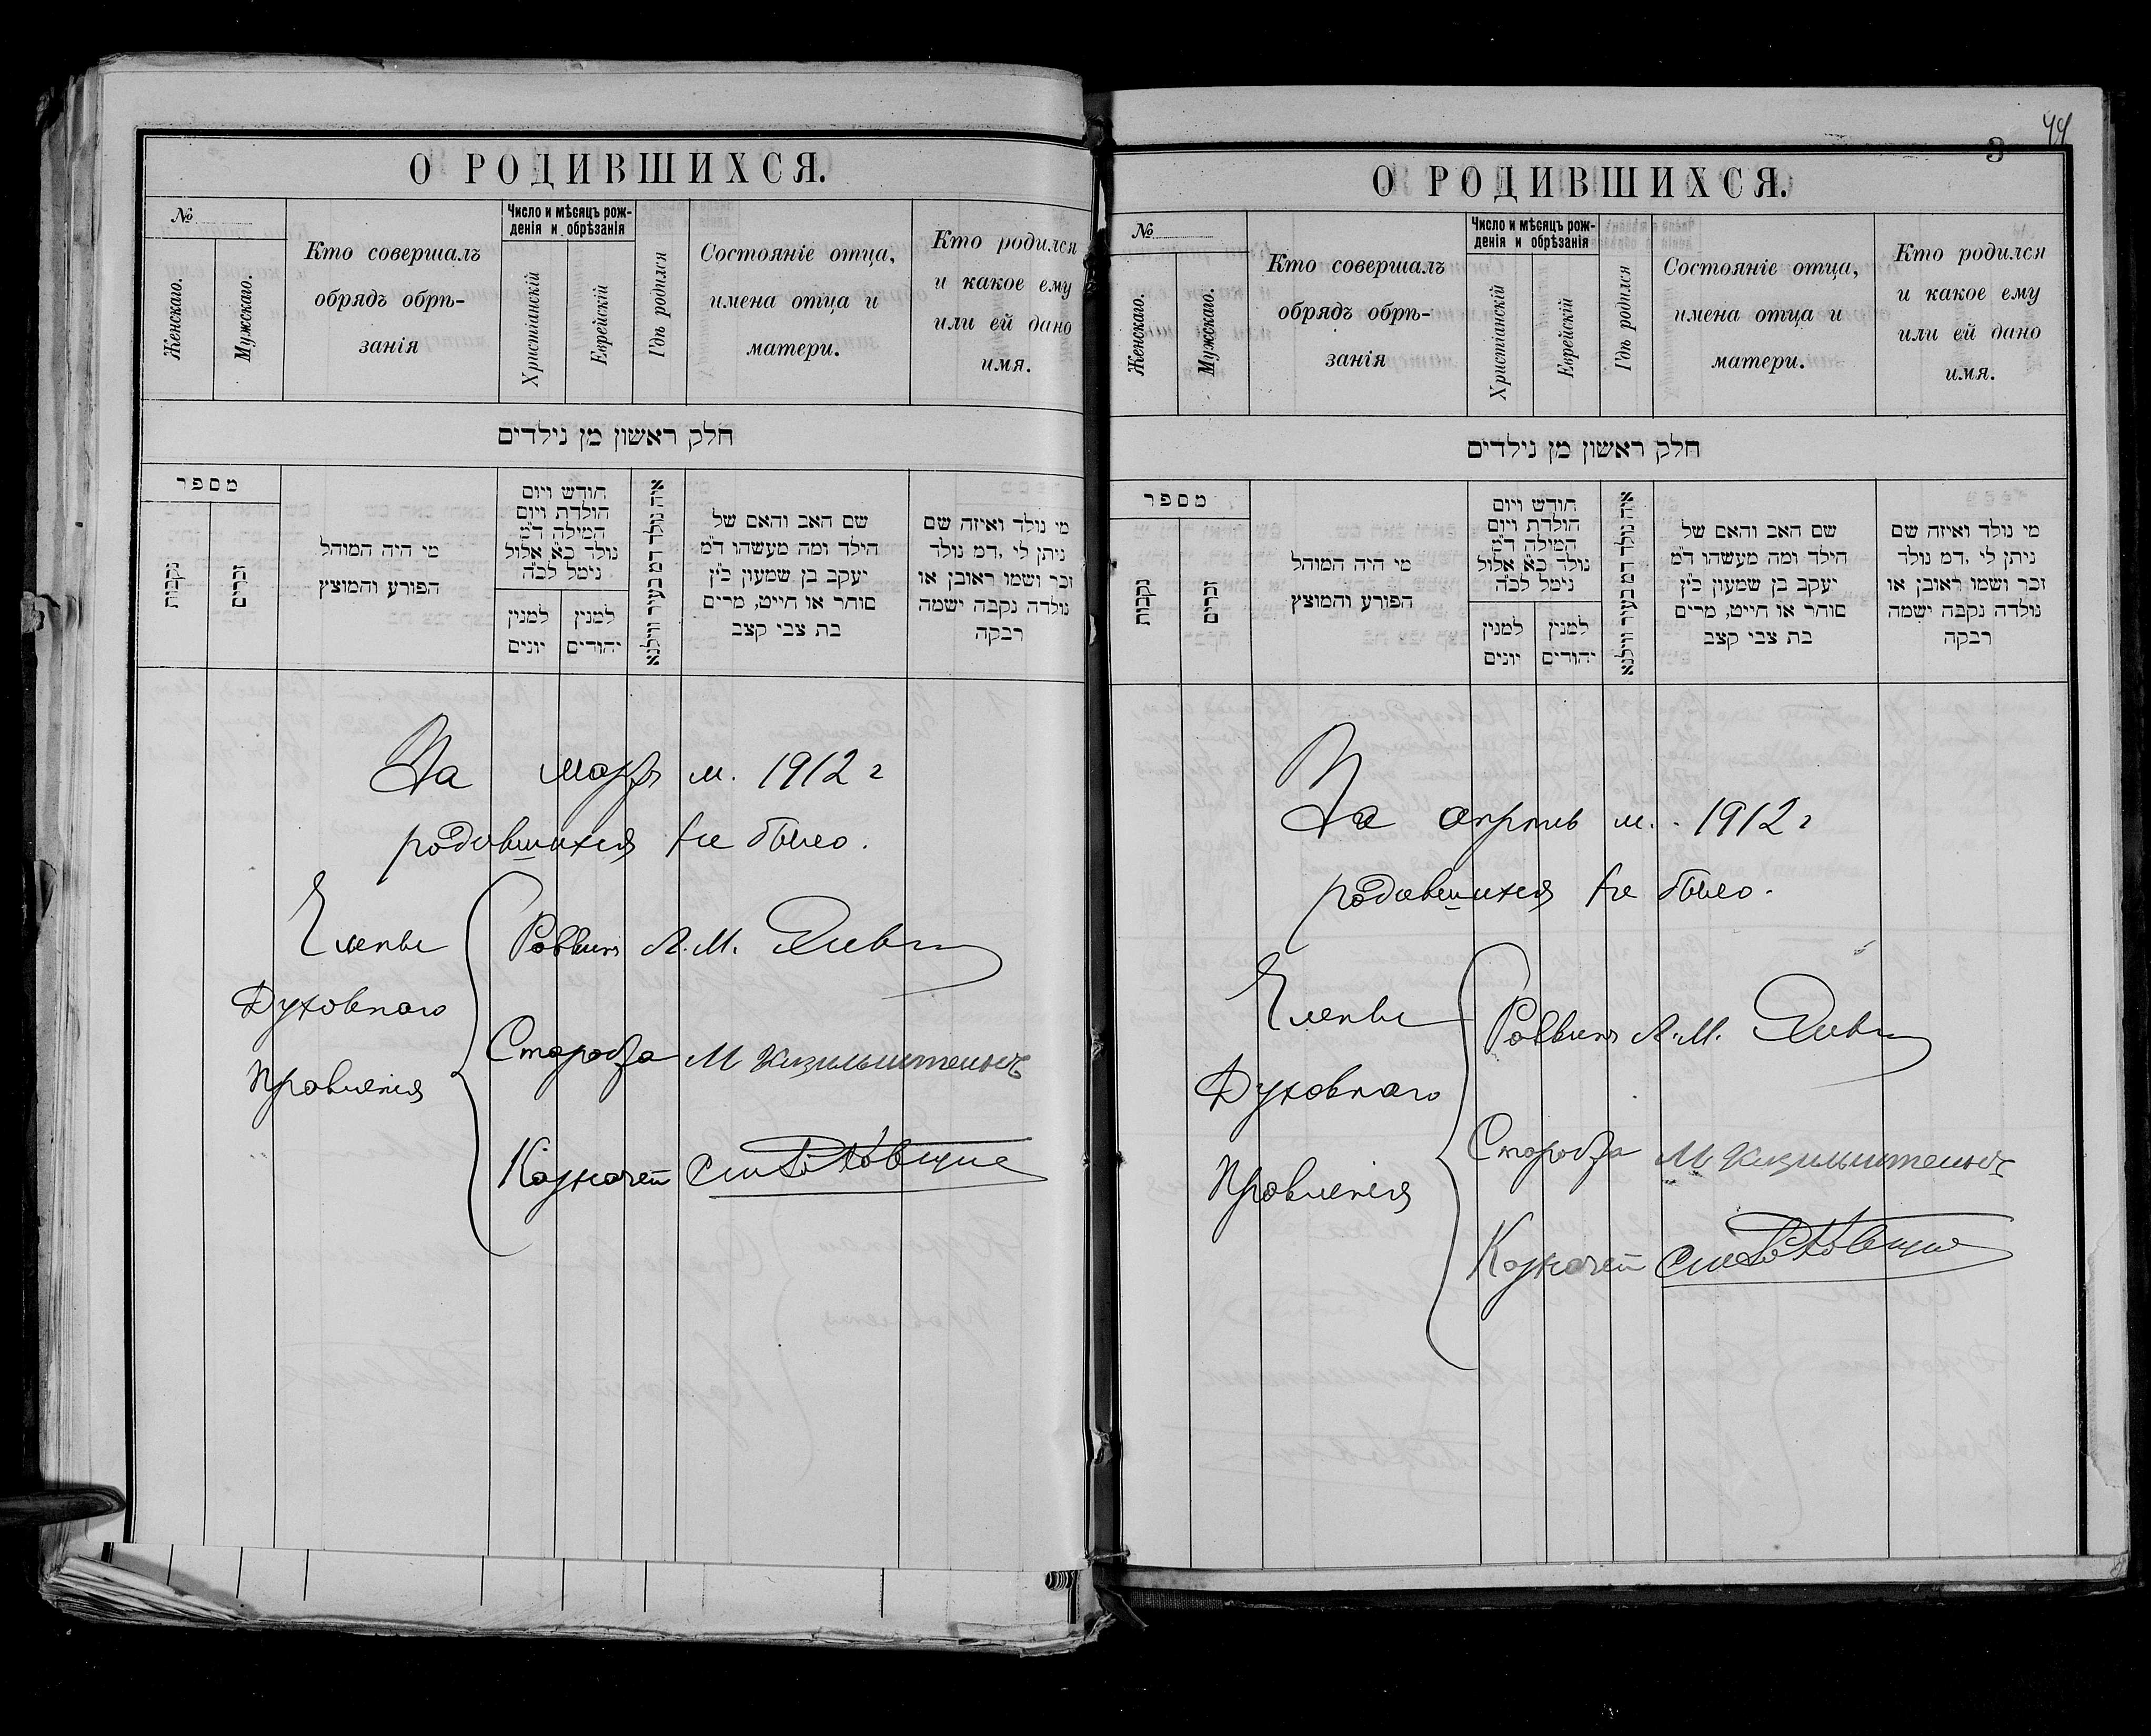 О РОДИВШИХСЯ.
№
Женскаго.
Мужскаго.
Кто совершалъ
обрядъ обрѣ-
занія
Число и мѣсяцъ рож-
денія и обрѣзанія
Христіанскій
Еврейскій
Гдѣ родился
Состояніе отца,
имена отца и
матери.
Кто родился
и какое ему
или ей дано
имя.
חלק ראשון מן נילדים
מספר
נקבות
זכרים
מי היה המוהל
הפורע והמוצץ
חודש ויום
הולדת ויום
המילה ד״מ
נולד כ״א אלול
נימל לכ״ה
למנין
יונים
למנין
יהודים
איה נולד דמ בעיר ווילנא
שם האב והאם של
הילד ומה מעשהו ד״מ
יעקב בן שמעון כ״ץ
סוחר או חייט, מרים
בת צבי קצב
מי נולד ואיזה שם
ניתן לי ,דמ נולד
זכר ושמו ראובן או
נולדה נקבה ישמה
רבקה
За мартъ м. 1912 г
родившихся не было.
Члены
Духовнаго
Правленія
Раввинъ А. М.
Староста М Кизильштейнъ
Казначей
44
3
О РОДИВШИХСЯ.
№
Женскаго.
Мужскаго.
Кто совершалъ
обрядъ обрѣ-
занія
Число и мѣсяцъ рож-
денія и обрѣзанія
Христіанскій
Еврейскій
Гдѣ родился
Состояніе отца,
имена отца и
матери.
Кто родился
и какое ему
или ей дано
имя.
חלק ראשון מן נילדים
מספר
נקבות
זכרים
מי היה המוהל
הפורע והמוצץ
חודש ויום
הולדת ויום
המילה ד״מ
נולד כ״א אלול
נימל לכ״ה
למנין
יונים
למנין
יהודים
איה נולד דמ בעיר ווילנא
שם האב והאם של
הילד ומה מעשהו ד״מ
יעקב בן שמעון כ״ץ
סוחר או חייט, מרים
בת צבי קצב
מי נולד ואיזה שם
ניתן לי ,דמ נולד
זכר ושמו ראובן או
נולדה נקבה ישמה
רבקה
За апрѣль м. 1912 г
родившихся не было.
Члены
Духовнаго
Правленія
Раввинъ А. М.
Староста М Кизильштейнъ
Казначей